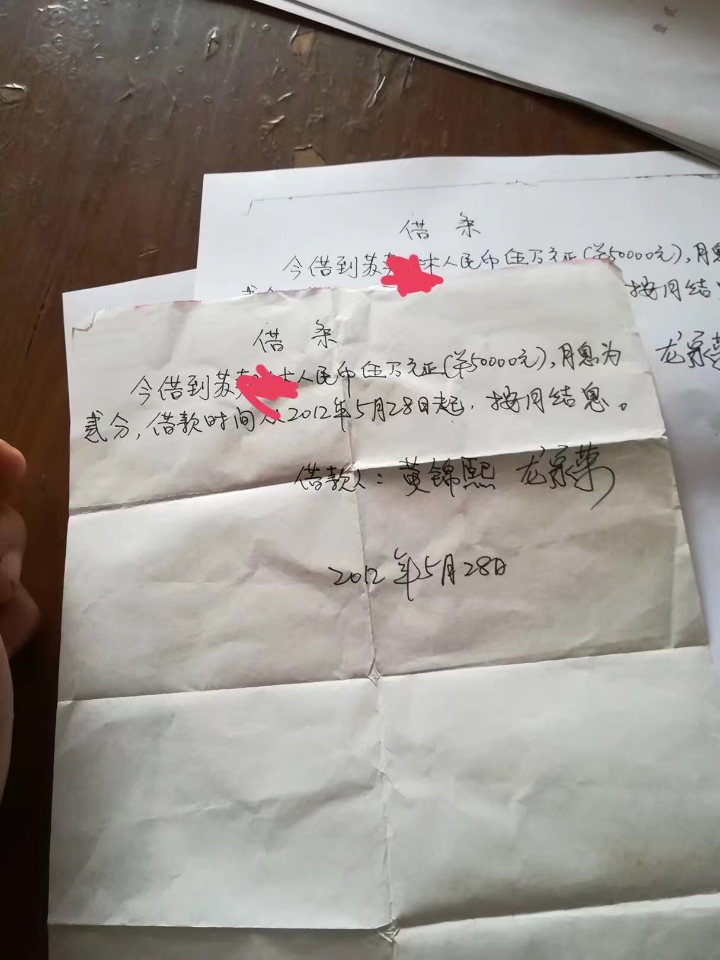 借条
今借到苏 人民币伍万元正(¥50000元),月息
按月结
龙家荣
借条
今借到苏 人民币伍万元正(¥50000元),月息为
贰分,借款时间从2012年5月28日起,按月结息。
借款人:黄锦熙 龙家荣
2012年5月28日